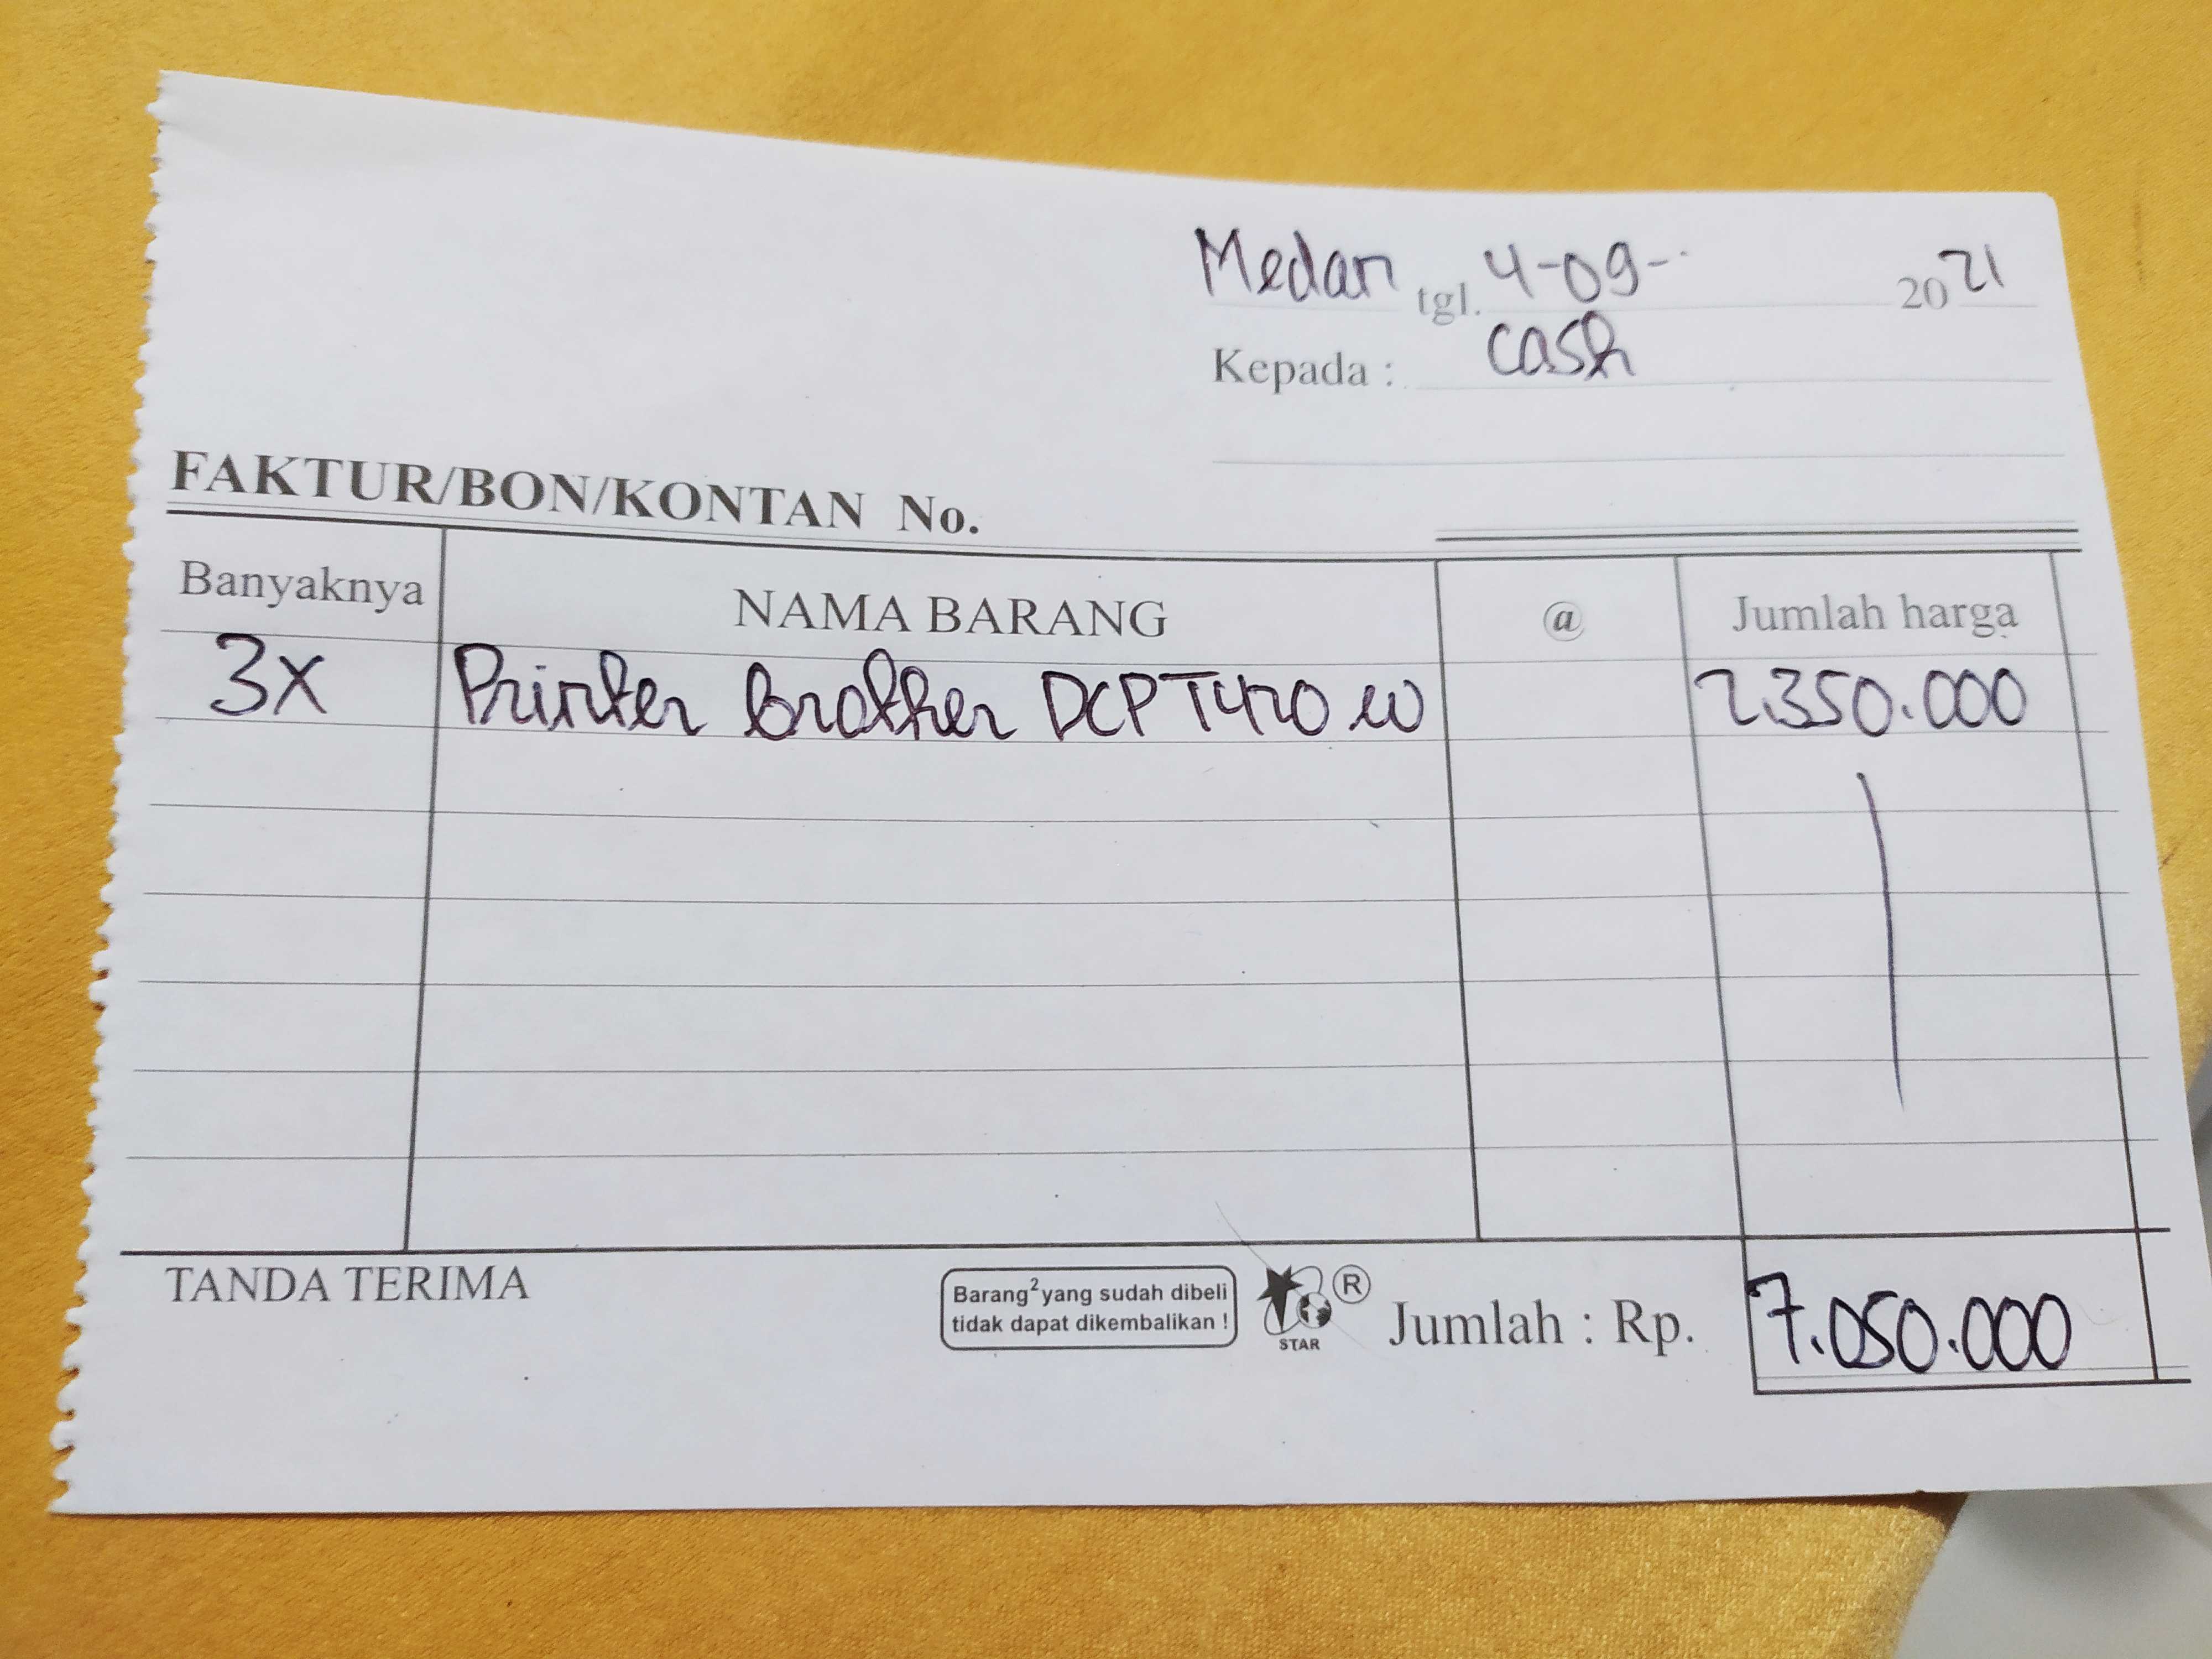 Medan tgl. 4-09-.. 2021
Kepada : cash
FAKTUR/BON/KONTAN No.
Banyaknya NAMA BARANG @ Jumlah harga
3x Printer brother DCP T420 w 2.350.000
TANDA TERIMA
Barang² yang sudah dibeli
tidak dapat dikembalikan !
STAR
®
Jumlah : Rp. 7.050.000